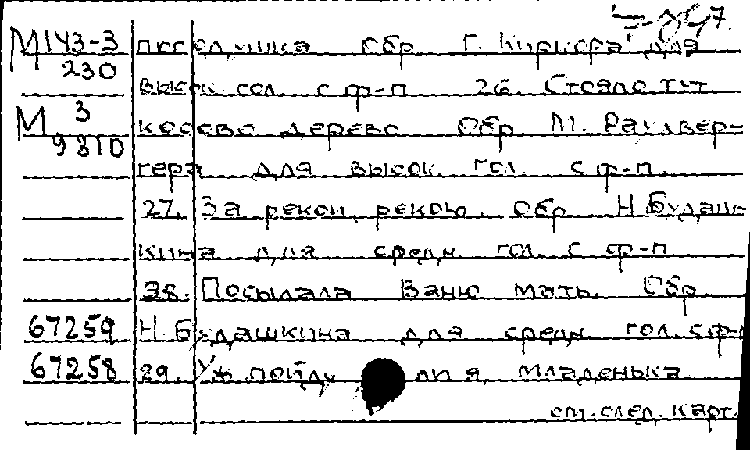 М143-3
230
М 3
9310
67259
67258
Обр. Г. Киркора для
высок гол. с ф-п 26. Стояло тут
косево дерево Обр М. Раухвер-
гера для высок. гол. с ф-п.
27. За рекой, рекою. Обр Н. Будаш-
кина для средн гол. с ф-п
28. Посылала Ваню мать. Обр
Н. Будашкина для средн гол. с ф-п
29. Уж пойду ли я, младенька
см. след. карт.